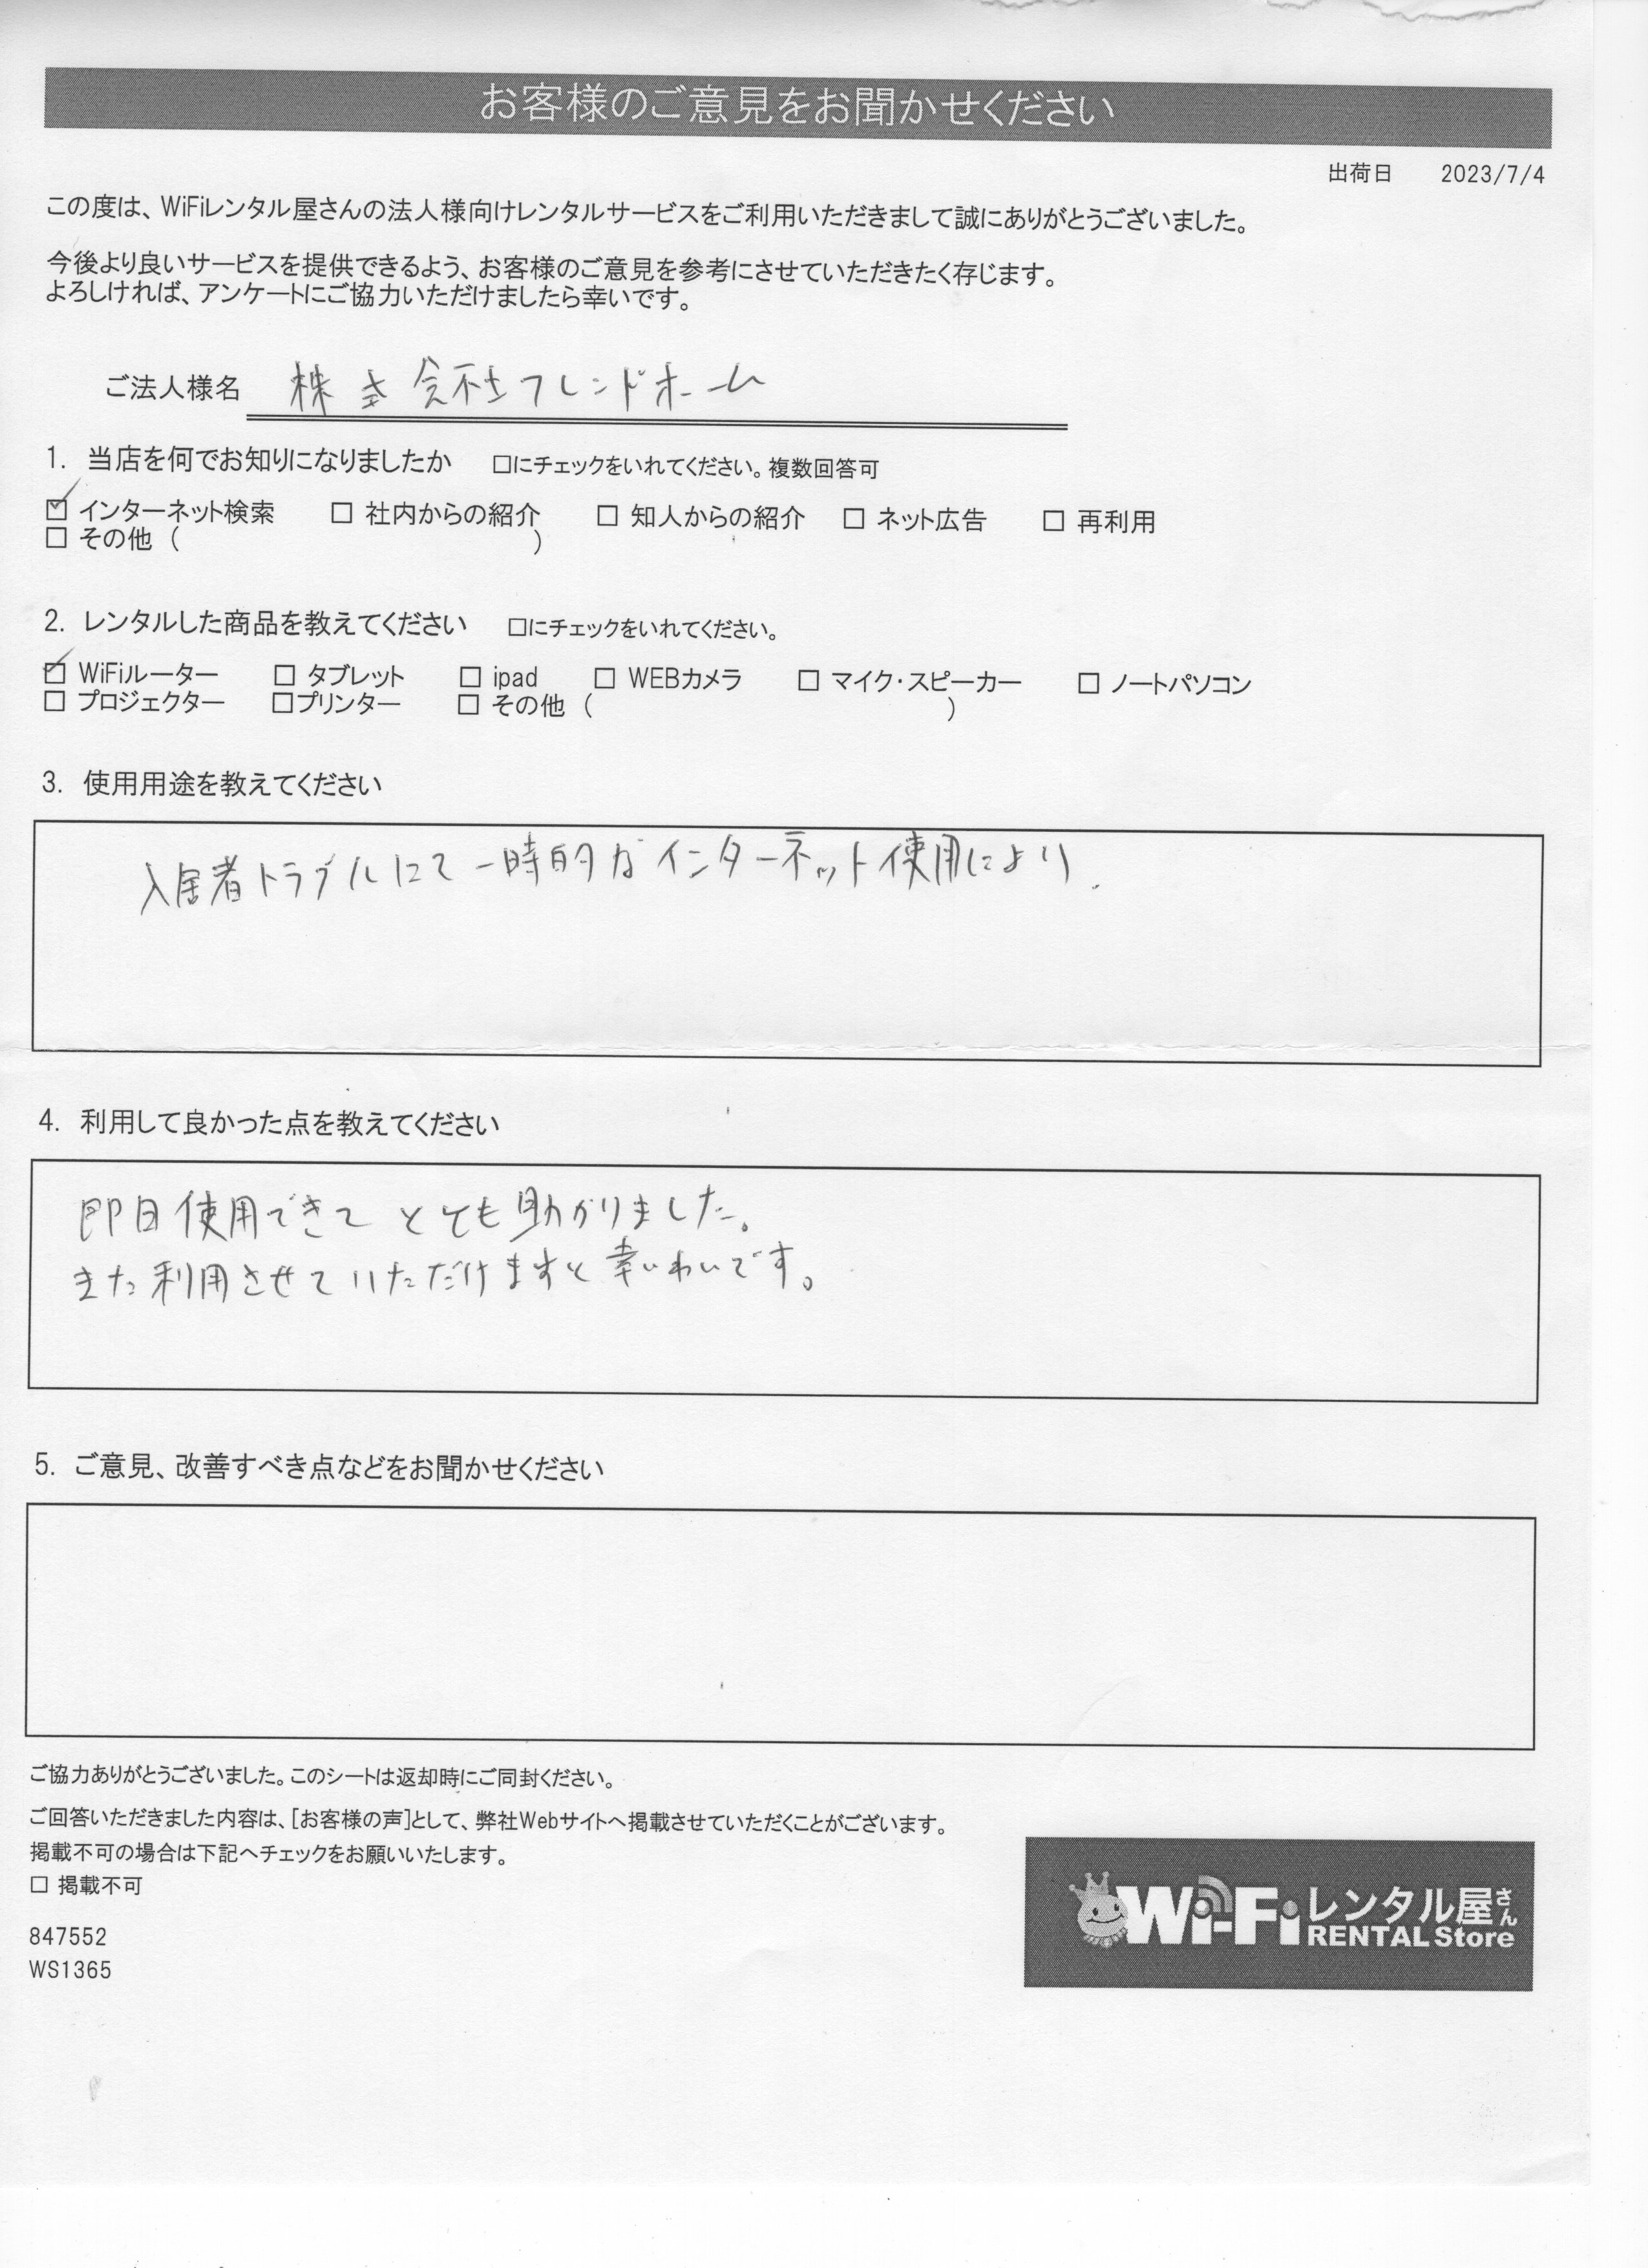 お客様のご意見をお聞かせください
出荷日 2023/7/4
この度は、WiFiレンタル屋さんの法人様向けレンタルサービスをご利用いただきまして誠にありがとうございました。
今後より良いサービスを提供できるよう、お客様のご意見を参考にさせていただきたく存じます。
よろしければ、アンケートにご協力いただけましたら幸いです。
ご法人様名 株式会社フレンドホーム
1. 当店を何でお知りになりましたか □にチェックをいれてください。複数回答可
☑ インターネット検索 □ 社内からの紹介 □ 知人からの紹介 □ ネット広告 □ 再利用
□ その他 ( )
2. レンタルした商品を教えてください □にチェックをいれてください。
☑ WiFiルーター □ タブレット □ ipad □ WEBカメラ □ マイク・スピーカー □ ノートパソコン
□ プロジェクター □プリンター □ その他 ( )
3. 使用用途を教えてください
入居者トラブルにて一時的なインターネット使用により.
4. 利用して良かった点を教えてください
即日使用できてとても助かりました。
また利用させていただけますと幸いわいです。
5. ご意見、改善すべき点などをお聞かせください
ご協力ありがとうございました。このシートは返却時にご同封ください。
ご回答いただきました内容は、[お客様の声]として、弊社Webサイトへ掲載させていただくことがございます。
掲載不可の場合は下記へチェックをお願いいたします。
□ 掲載不可
847552
WS1365
Wi-Fiレンタル屋さん
RENTAL Store